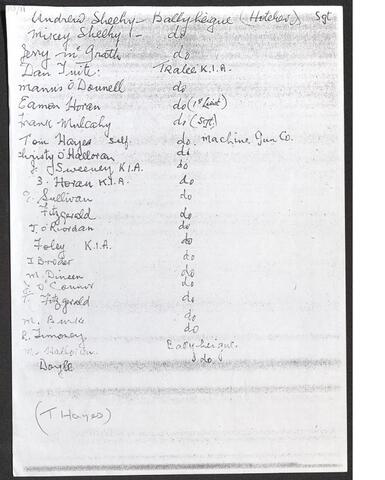 Andrew Sheehy - Ballyheigue (Hotchkiss) Sgt
Mickey Sheehy 1- do
Jerry Mc Grath do
Dan Tuite: Tralee K.I.A.
Mannis O'Donnell do
Eamon Horan do (1st Lieut)
Frank Mulcahy do (Sgt)
Tom Hayes Self. do. Machine Gun Co.
Christy O'Halloran do
J. Sweeney, K.I.A. do
3. Horan K.I.A. do
Sullivan do
Fitzgerald do
J. O'Riordan do
Foley K.I.A. do
J Broder do
M. Dineen do
O'Connor do
T. Fitzgerald do
M. Burke do
R. Timoney do
M. Halloran Ballyheigue.
Doyle do.
(T Hayes)